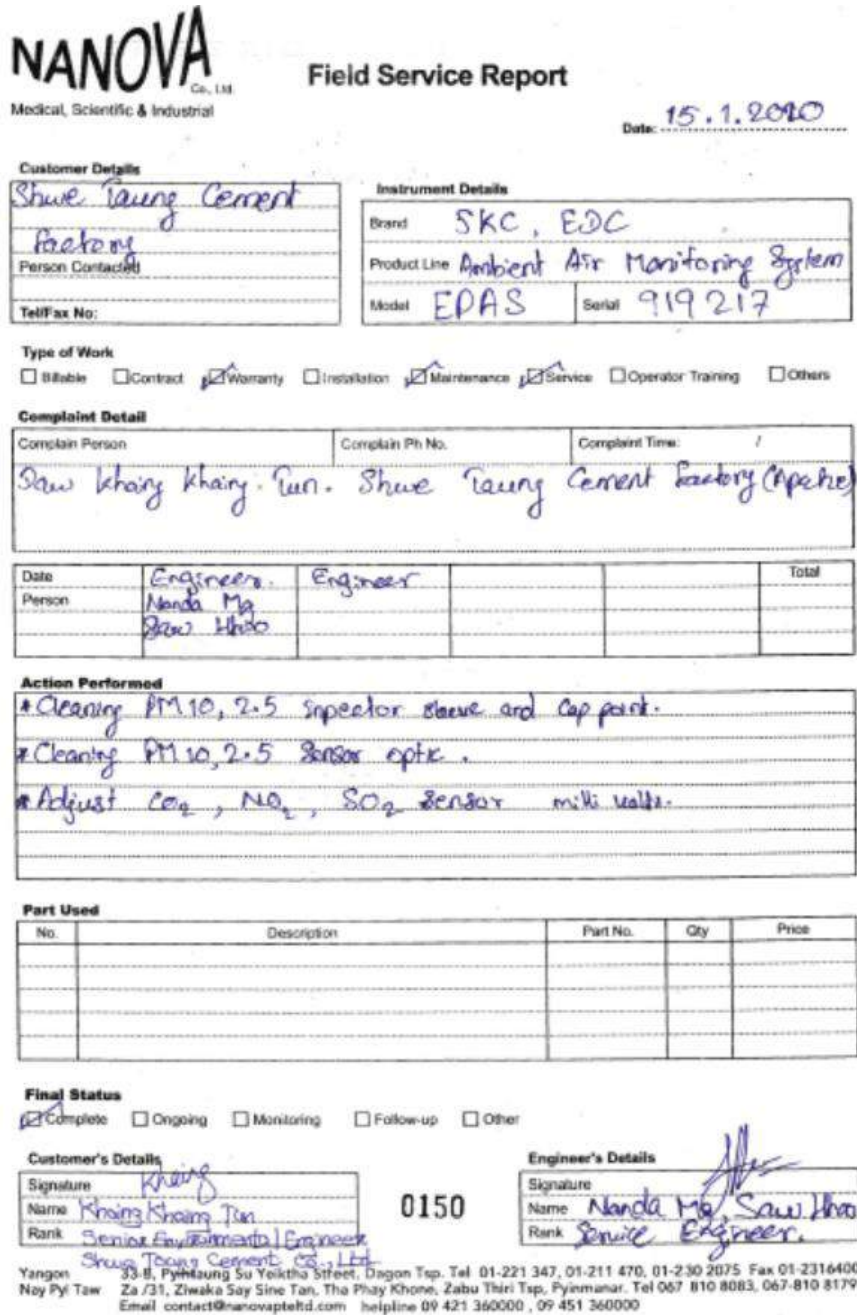 NANOVA Co., Ltd.
Medical, Scientific & Industrial
Field Service Report
Date: 15.1.2020
Customer Details
Shwe Taung Cement
Factory
Person Contacted
Tell/Fax No:
Instrument Details
Brand SKC, EDC
Product Line Ambient Air Monitoring System
Model EPAS Serial 919217
Type of Work
Billable Contract Warranty Installation Maintenance Service Operator Training Others
Complaint Detail
Complain Person Complain Ph No. Complaint Time: /
Daw Khaing Khaing Tun. Shwe Taung Cement Factory (Apache)
Date Engineer. Engineer Total
Person Nanda Mg
Saw Htoo
Action Performed
* Cleaning PM 10, 2.5 Inpector sleeve and cap point.
* Cleaning PM 10, 2.5 Sensor optic.
* Adjust CO2, NO2, SO2 Sensor milli volts.
Part Used
No. Description Part No. Qty Price
Final Status
Complete Ongoing Monitoring Follow-up Other
Customer's Details
Signature Khaing
Name Khaing Khaing Tun
Rank Senior Environmental Engineer
Shwe Taung Cement Co., Ltd
0150
Engineer's Details
Signature
Name Nanda Mg, Saw Htoo
Rank Service Engineer.
Yangon 33-B, Pyihtaung Su Yeiktha Street, Dagon Tsp. Tel 01-221 347, 01-211 470, 01-230 2075 Fax 01-2316400
Nay Pyi Taw Za /31, Ziwaka Say Sine Tan, Tha Phay Khone, Zabu Thiri Tsp, Pyinmanar. Tel 067 810 8083, 067-810 8179
Email contact@nanovapteltd.com helpline 09 421 360000 , 09 451 360000